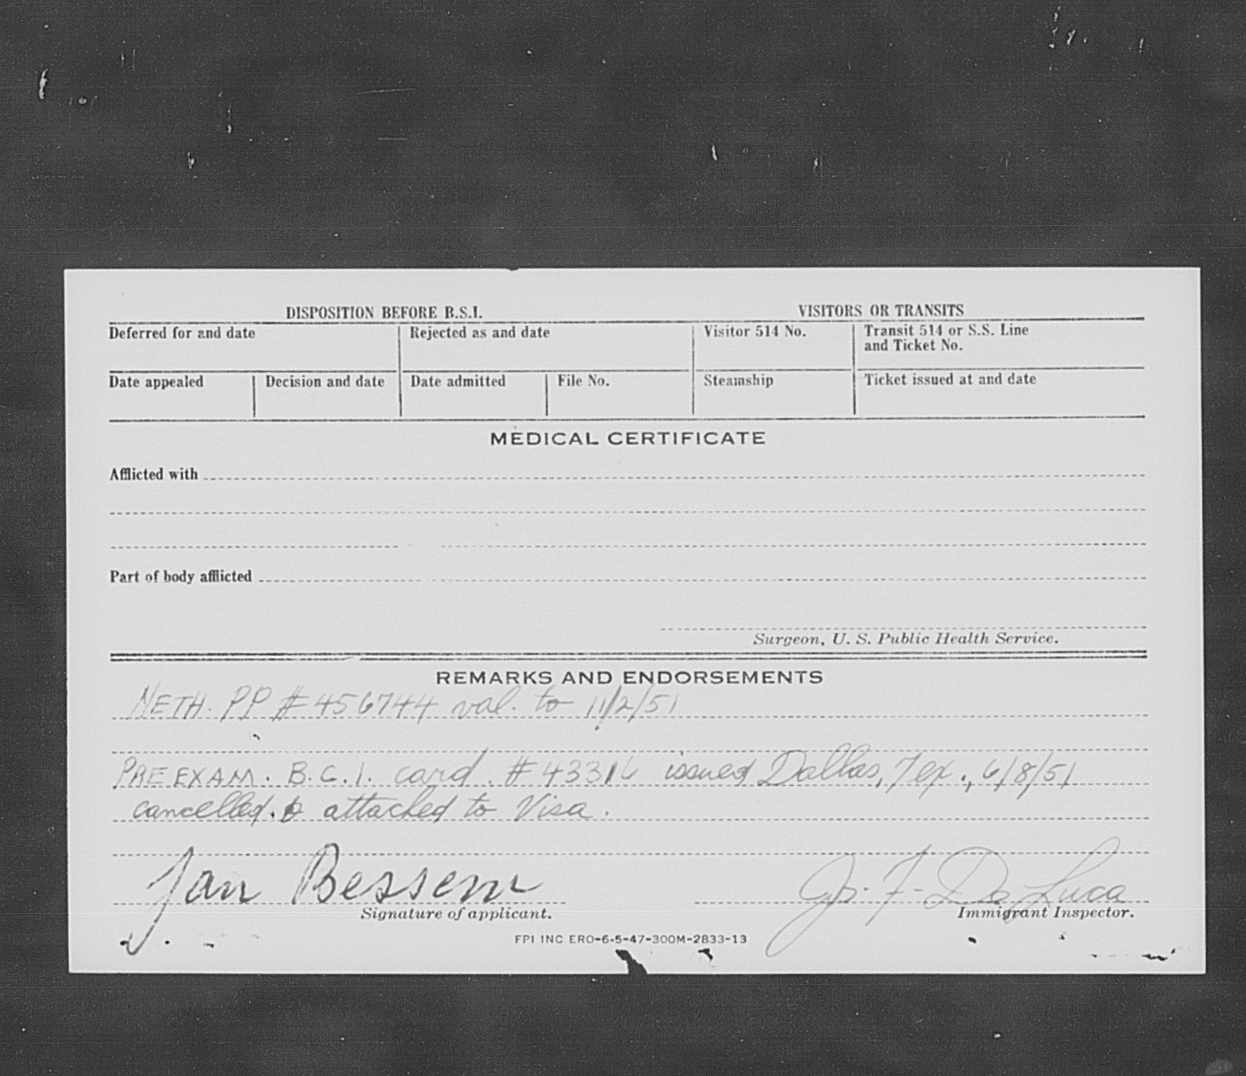 DISPOSITION BEFORE B.S.I. VISITORS OR TRANSITS
Deferred for and date Rejected as and date Visitor 514 No. Transit 514 or S.S. Line
and Ticket No.
Date appealed Decision and date Date admitted File No. Steamship Ticket issued at and date
MEDICAL CERTIFICATE
Afflicted with
Part of body afflicted
Surgeon, U. S. Public Health Service.
REMARKS AND ENDORSEMENTS
NETH. PP # 456744 val. to 11/2/51
PRE EXAM. B.C.I. card. # 43316 issued Dallas, Tex., 6/8/51
cancelled. & attached to Visa.
Jan Bessem F. De Luca
Signature of applicant. Immigrant Inspector.
FPI INC ERO-6-5-47-300M-2833-13